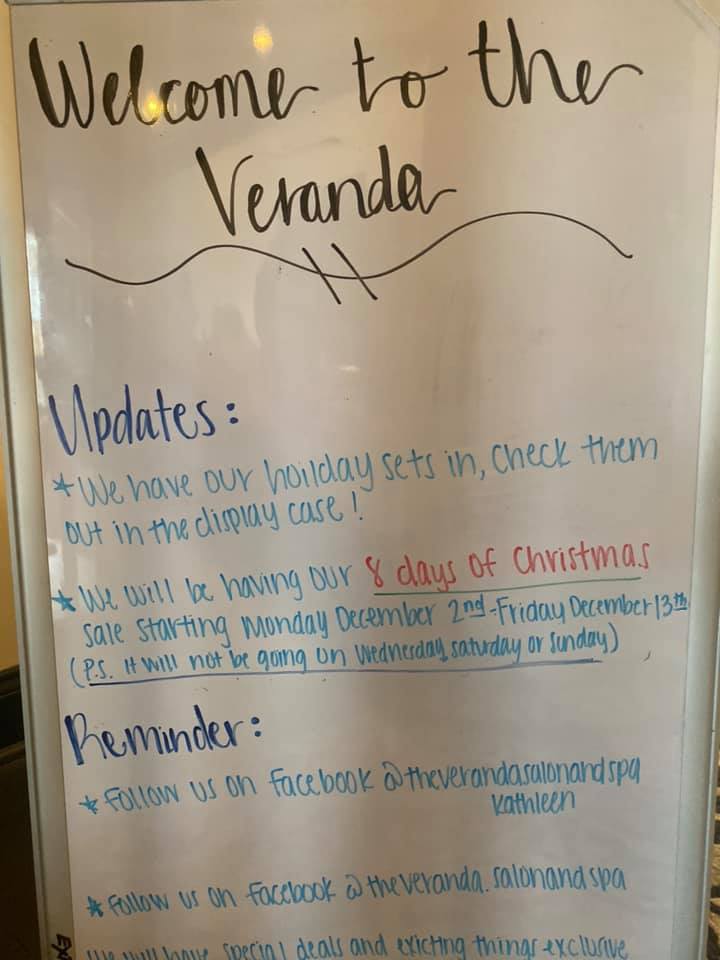 Welcome to the
Veranda
Updates:
★We have our hoilday sets in, check them
out in the display case!
★We will be having our 8 days of Christmas
sale starting Monday December 2nd-Friday December 13th
(P.S. It will not be going on Wednesday, saturday or sunday)
Reminder:
★Follow us on Facebook @theverandasalonandspa
Kathleen
★Follow us on Facebook @theveranda.salonandspa
We will have special deals and exicting things exclusive